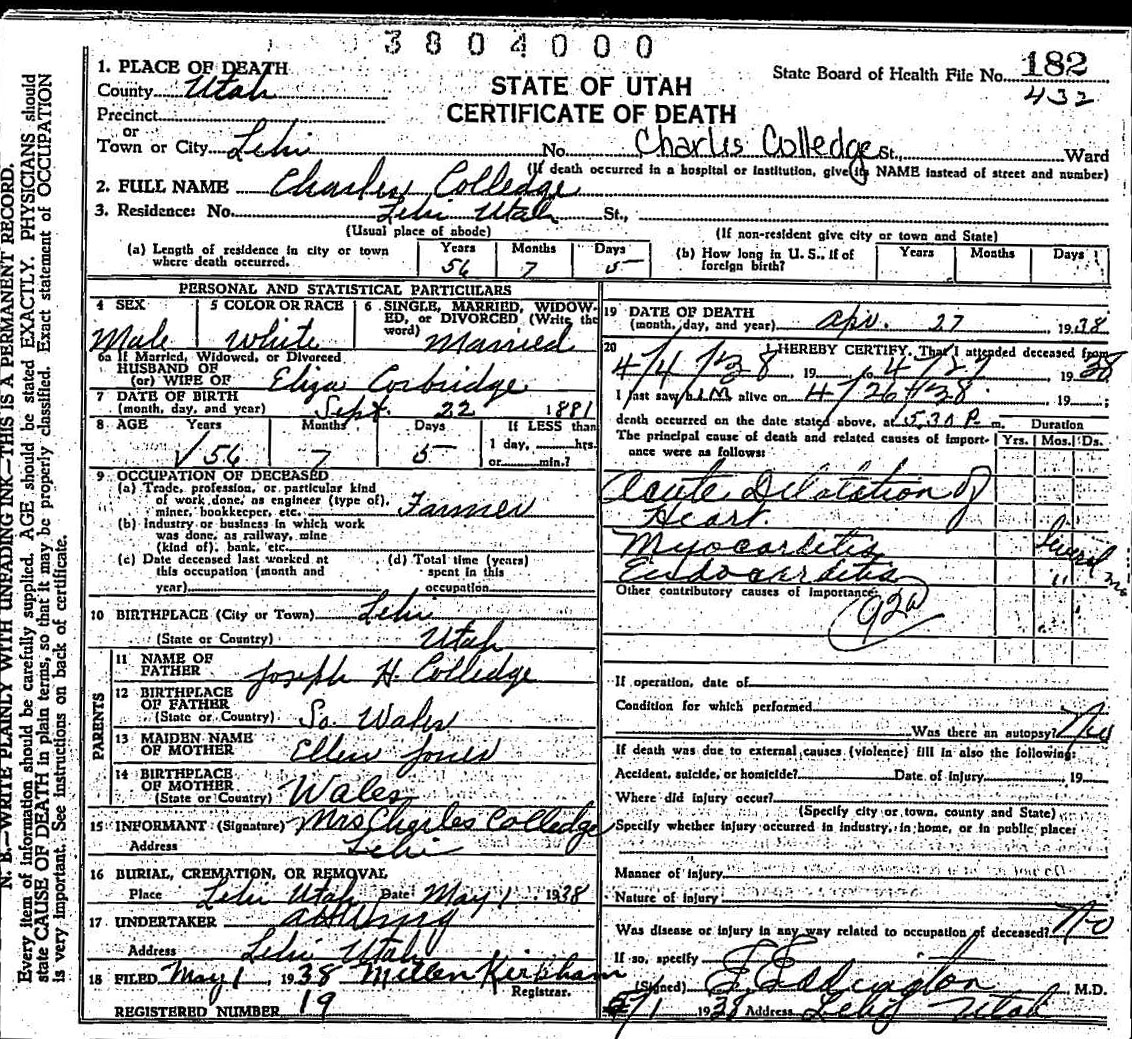 3804000
1. PLACE OF DEATH
County Utah
Precinct
or
Town or City Lehi No. Charles Colledge St., Ward
STATE OF UTAH
CERTIFICATE OF DEATH
State Board of Health File No. 182
432
(If death occurred in a hospital or institution, give its NAME instead of street and number)
2. FULL NAME Charles Colledge
3. Residence: No. Lehi Utah St.,
(Usual place of abode) (If non-resident give city or town and State)
(a) Length of residence in city or town where death occurred. Years 56 Months 7 Days 5
(b) How long in U. S., if of foreign birth? Years Months Days
PERSONAL AND STATISTICAL PARTICULARS
4 SEX Male
5 COLOR OR RACE White
6 SINGLE, MARRIED, WIDOWED, or DIVORCED (Write the word) Married
6a If Married, Widowed, or Divorced
HUSBAND OF
(or) WIFE OF Eliza Corbridge
7 DATE OF BIRTH
(month, day, and year) Sept. 22 1881
8 AGE Years Months Days If LESS than
√56 7 5 1 day, hrs.
or min.?
9 OCCUPATION OF DECEASED
(a) Trade, profession, or particular kind
of work done, as engineer (type of),
miner, bookkeeper, etc. Farmer
(b) Industry or business in which work
was done, as railway, mine
(kind of), bank, etc.
(c) Date deceased last worked at
this occupation (month and
year)
(d) Total time (years)
spent in this
occupation
10 BIRTHPLACE (City or Town) Lehi
(State or Country) Utah
PARENTS
11 NAME OF
FATHER Joseph H. Colledge
12 BIRTHPLACE
OF FATHER
(State or Country) So. Wales
13 MAIDEN NAME
OF MOTHER Ellen Jones
14 BIRTHPLACE
OF MOTHER
(State or Country) Wales
15 INFORMANT (Signature) Mrs Charles Colledge
Address Lehi
16 BURIAL, CREMATION, OR REMOVAL
Place Lehi Utah Date May 1 1938
17 UNDERTAKER
Address Lehi Utah
18 FILED May 1, 1938 Kirkham
Registrar.
REGISTERED NUMBER 19
19 DATE OF DEATH
(month, day, and year) Apr. 27 1938
20 I HEREBY CERTIFY, That I attended deceased from
4/4/38, 19 to 4/27 1938
I last saw him alive on 4/26/38 19 ;
death occurred on the date stated above, at 5.30 P. m.
The principal cause of death and related causes of importance were as follows:
Duration
Yrs. Mos. Ds.
Acute Dilatation of
Heart.
Myocarditis Several
Endocarditis " ms
Other contributory causes of importance:
92a
If operation, date of
Condition for which performed
Was there an autopsy? No
If death was due to external causes (violence) fill in also the following:
Accident, suicide, or homicide? Date of injury 19
Where did injury occur?
(Specify city or town, county and State)
Specify whether injury occurred in industry, in home, or in public place:
Manner of injury
Nature of injury
Was disease or injury in any way related to occupation of deceased? No
If so, specify
(Signed) E Eddington M.D.
5/1 1938 Address Lehi, Utah
N. B.—WRITE PLAINLY WITH UNFADING INK—THIS IS A PERMANENT RECORD.
Every item of information should be carefully supplied. AGE should be stated EXACTLY. PHYSICIANS should
state CAUSE OF DEATH in plain terms, so that it may be properly classified. Exact statement of OCCUPATION
is very important. See instructions on back of certificate.